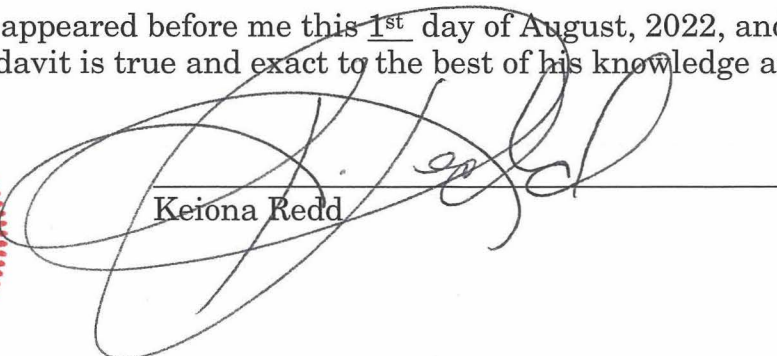 appeared before me this 1st day of August, 2022, and
davit is true and exact to the best of his knowledge a
Keiona Redd